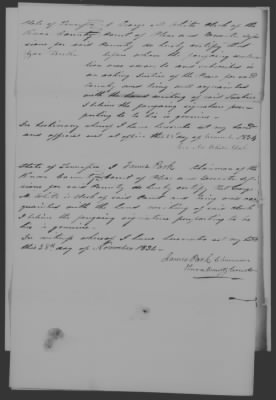 State of Tennessee I George M White Clerk of the
Knox County Court of Pleas and Quarter Sess
ions for said County do hereby certify that
before whom the foregoing
tion was sworn to and subscribed is
an acting Justice of the Peace for said
County and being well acquainted
with the hand writing of said
I believe the foregoing signature pur
porting to be his is genuine
In testimony whereof I have hereunto set my hand
and official seal at office this day of November 1834
Geo. M. White Clerk
State of Tennessee I James Park Chairman of the
Knox County Court of Pleas and Quarter Ses
sions for said County do hereby certify that George
M. White is Clerk of said Court and being well ac
quainted with the hand writing of said Clerk
I believe the foregoing signature purporting to be
his is genuine
In witness whereof I have hereunto set my hand
this 28th day of November 1834
James Park Chairman
Knox County Court